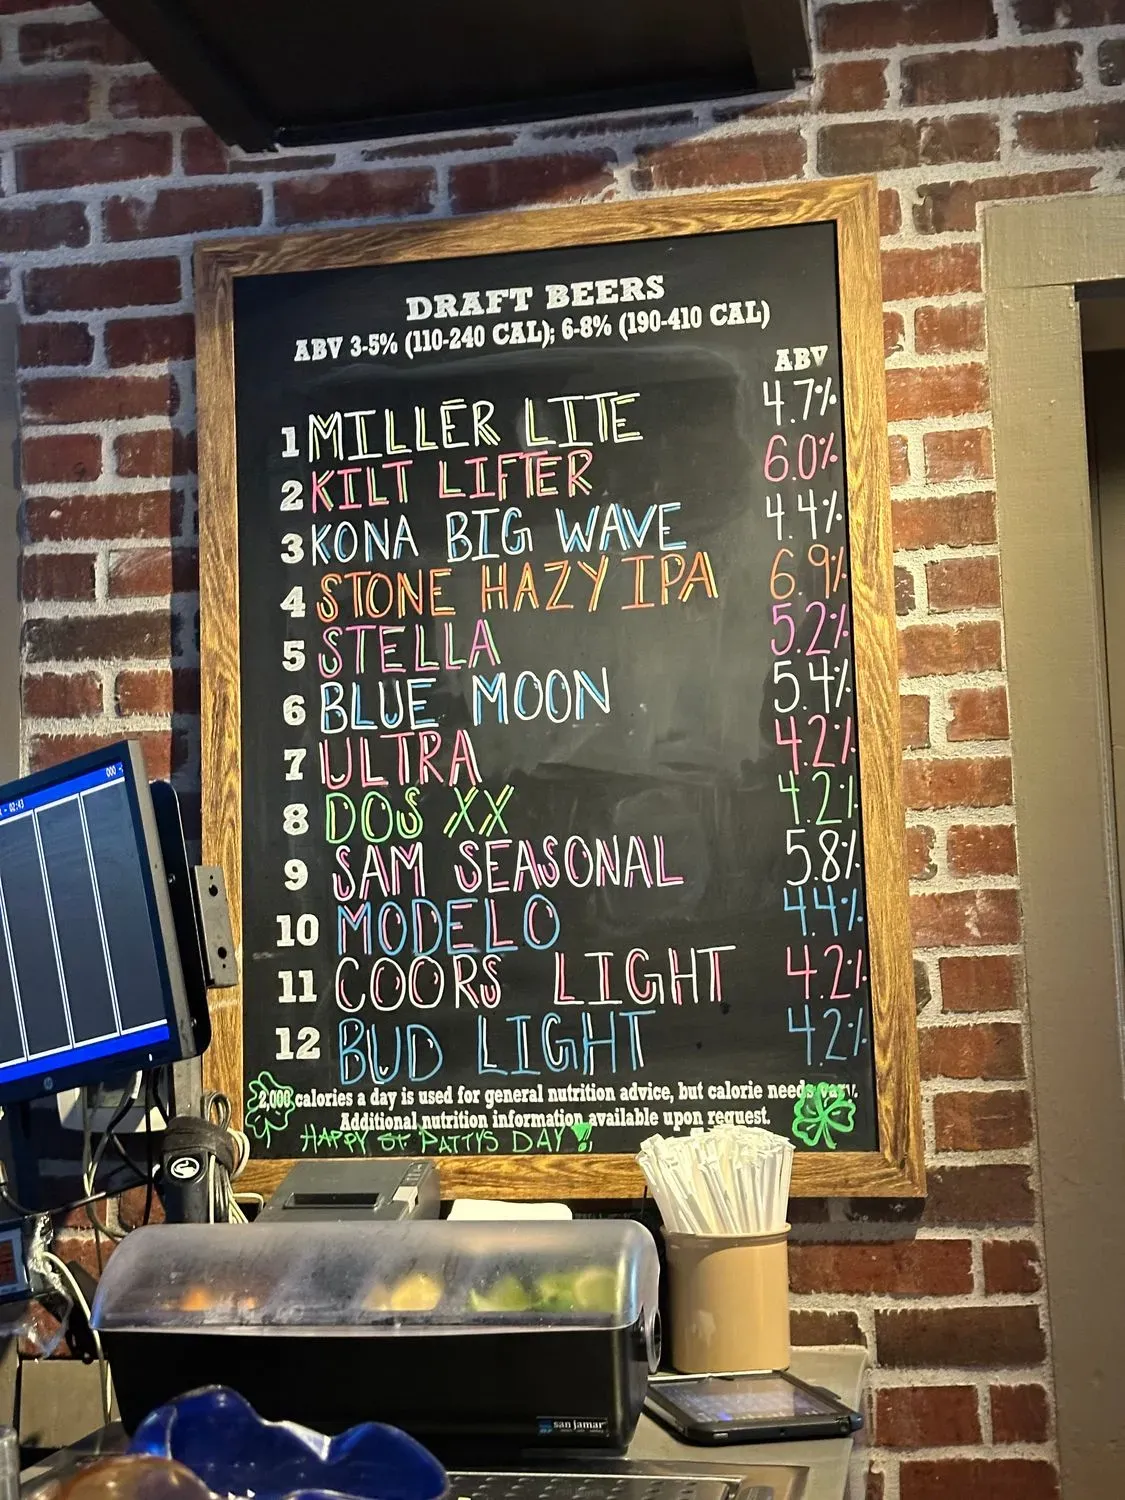 DRAFT BEERS
ABV 3-5% (110-240 CAL); 6-8% (190-410 CAL)
ABV
1 MILLER LITE 4.7%
2 KILT LIFTER 6.0%
3 KONA BIG WAVE 4.4%
4 STONE HAZY IPA 6.9%
5 STELLA 5.2%
6 BLUE MOON 5.4%
7 ULTRA 4.2%
8 DOS XX 4.2%
9 SAM SEASONAL 5.8%
10 MODELO 4.4%
11 COORS LIGHT 4.2%
12 BUD LIGHT 4.2%
2,000 calories a day is used for general nutrition advice, but calorie needs vary.
Additional nutrition information available upon request.
HAPPY ST PATTYS DAY!!
000
02:43
hp
san jamar